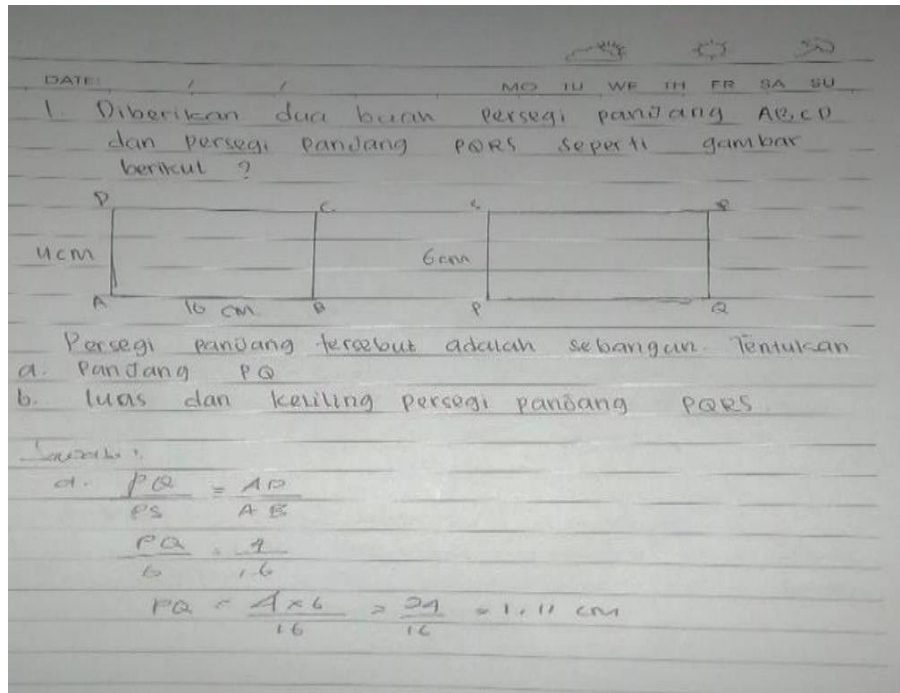 DATE: / /
MO TU WE TH FR SA SU
1. Diberikan dua buah persegi panjang ABCD
dan persegi panjang PQRS seperti gambar
berikut ?
D C S R
4cm 6cm
A 16 cm B P Q
Persegi panjang tersebut adalah sebangun. Tentukan
a. Panjang PQ
b. luas dan keliling persegi panjang PQRS
Jawab :
a. PQ/PS = AD/AB
PQ/6 = 4/16
PQ = 4x6/16 = 24/16 = 1,11 cm